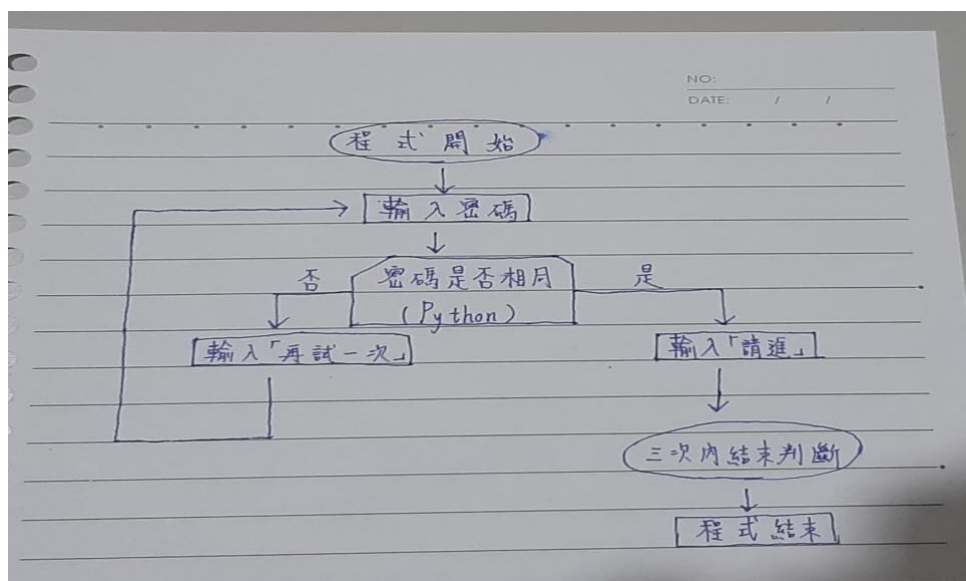 NO:
DATE: / /
程式開始
輸入密碼
否 密碼是否相同 是
(Python)
輸入「再試一次」 輸入「請進」
三次內結束判斷
程式結束